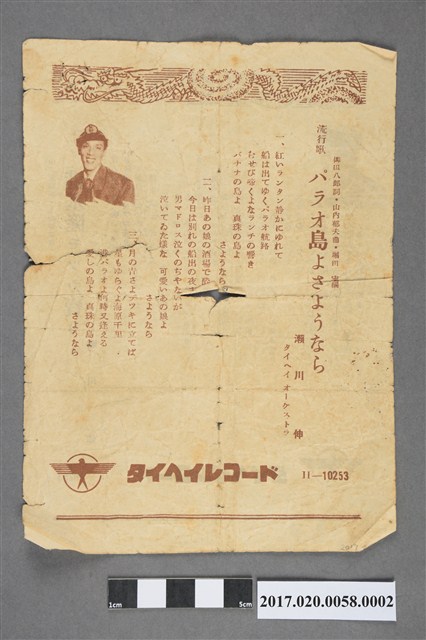 流行歌
パラオ島よさようなら
瀬川伸
タイヘイオーケストラ
一、紅いランタン静かにゆれて
船は出てゆくパラオ航路
むせび泣くよなランチの響き
バナナの島よ 真珠の島よ
さようなら
二、昨日あの娘の酒場で酔
今日は別れの船出の夜
男マドロス泣くのぢやないが
泣いてゐた様な 可愛いあの娘よ
さようなら
三、月の吉さよデツキに立てば
星もゆらぐよ海原千里
パラオよ何時又逢える
しの島よ 真珠の島よ
さようなら
タイヘイレコード
H-10253
1cm
5cm
2017.020.0058.0002